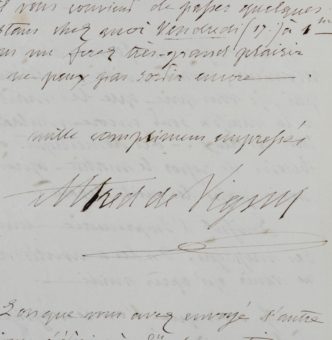 vous convient de passer quelques
chez moi Vendredi (17) à 1
me ferez très grand plaisir
ne peux pas sortir encore
mille complimens empressés
Alfred de Vigny
Lorsque vous avez envoyé l'autre